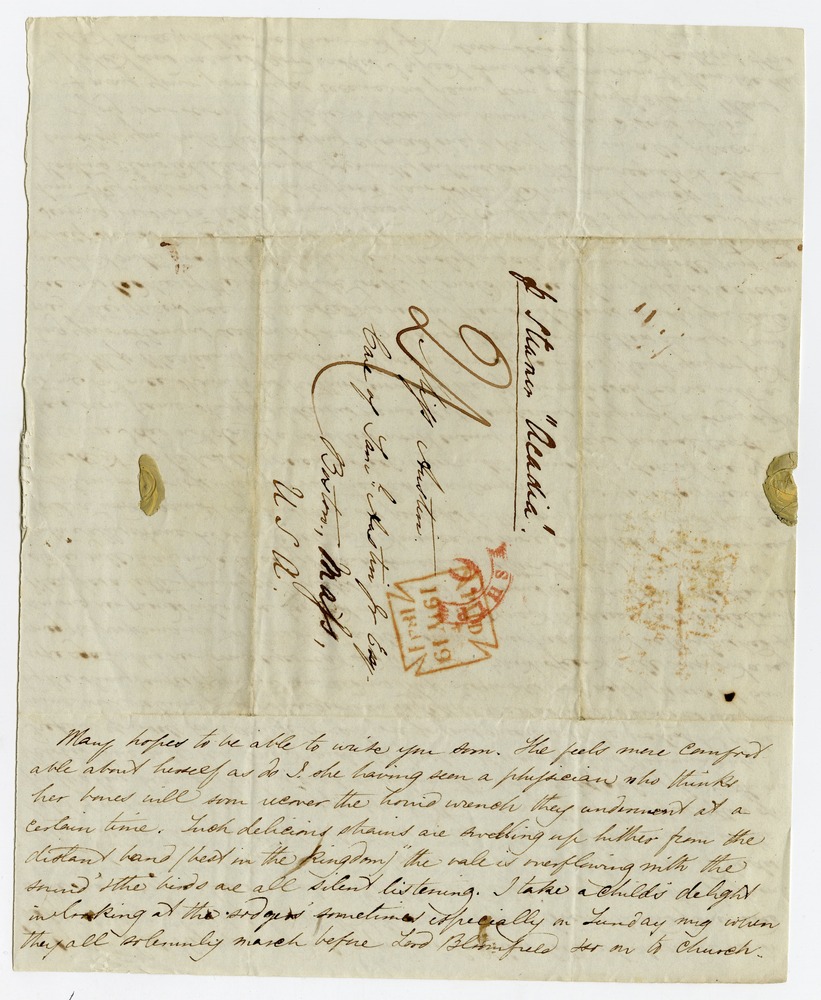 p Steamer "Acadia".
2
Miss Austin.
Care of Saml. Austin Jr Esq.
Boston, Mass,
U S A.
PAID
19 MY 19
1841
Mary hopes to be able to write you soon. She feels more comfort
able about herself as do I. she having seen a physician who thinks
her bones will soon recover the horrid wrench they underwent at a
certain time. Such delicious strains are swelling up hither from the
distant band (best in the kingdom) "the vale is overflowing with the
sound" & the birds are all silent listening. I take a child's delight
in looking at the 'sodgers' sometimes especially on Sunday mg when
they all solemnly march before Lord Bloomfield & so on to church.